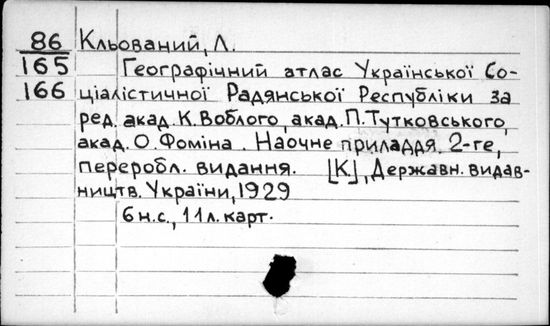 86 Кльований, Л.
165 Географічний атлас Української Со-
166 ціалістичної Радянської Республіки за
ред. акад. К. Воблого, акад. П. Тутковського,
акад. О. Фоміна. Наочне приладдя. 2-ге,
переробл. видання. [К], Державн. видав-
ництв. України, 1929
6 н.с., 11 л. карт.